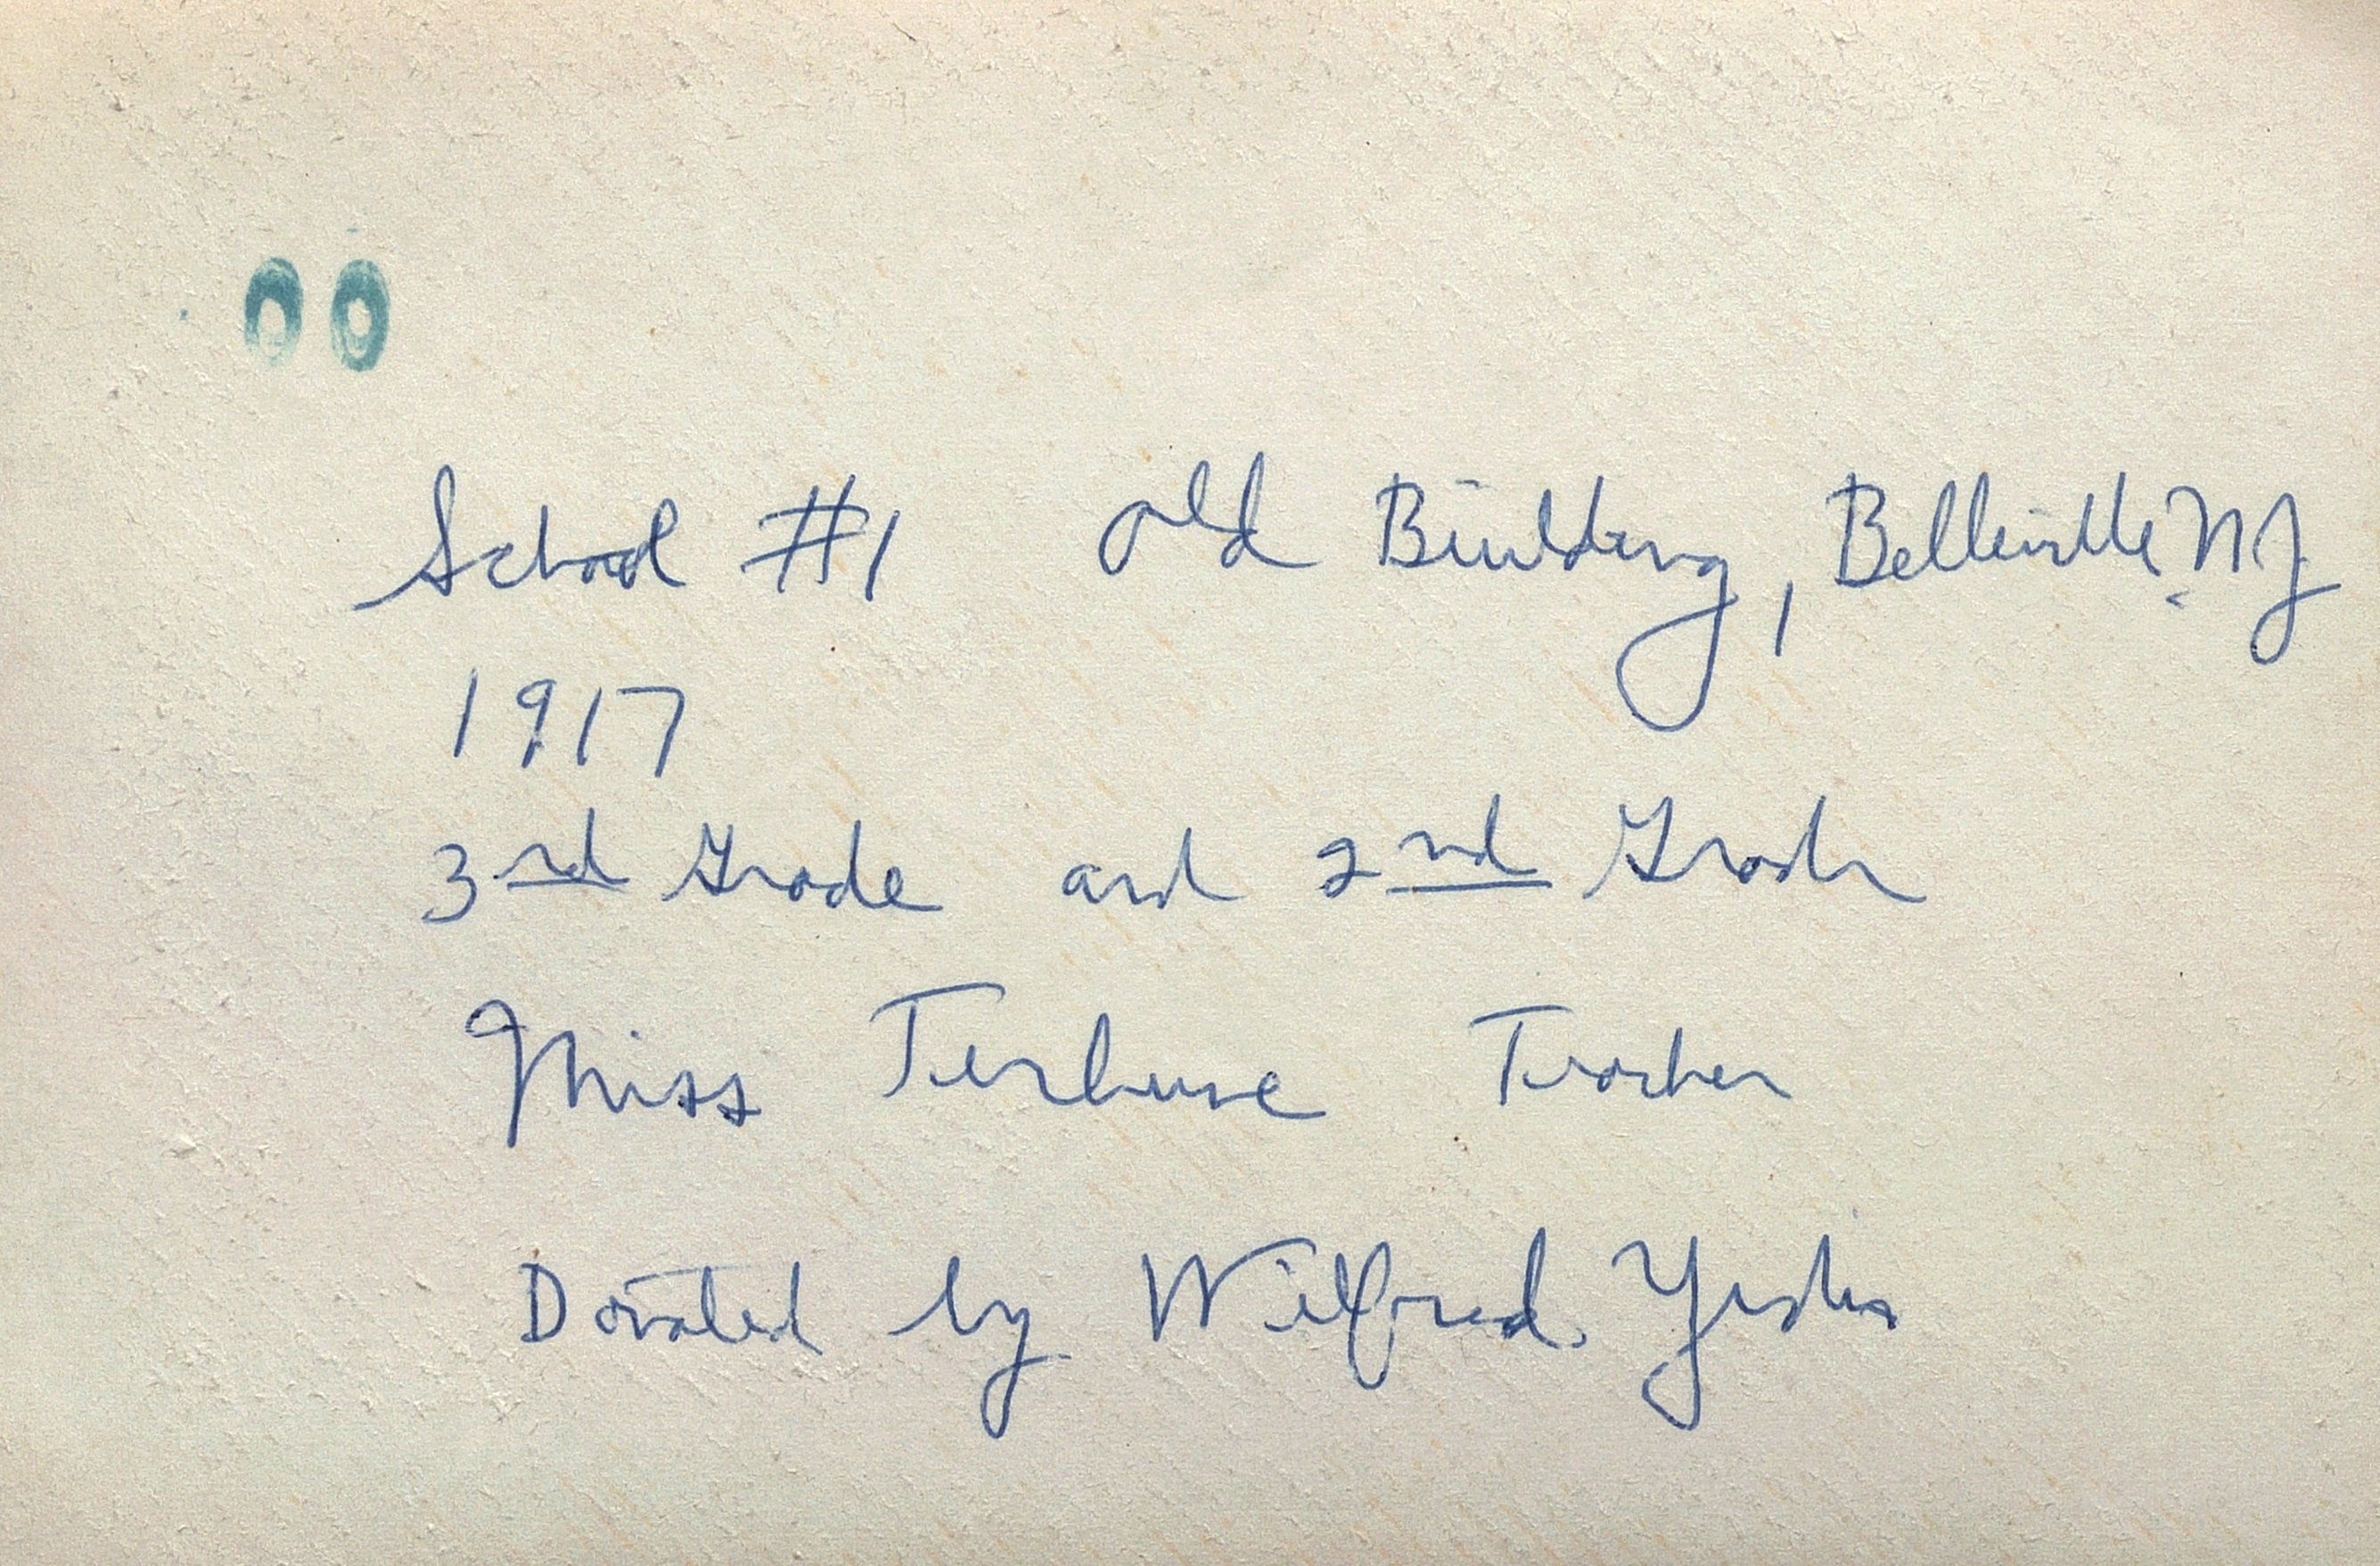 00
School #1 Old Building, Belleville, NJ
1917
3rd Grade and 2nd Grade
Miss Terhune Teacher
Donated by Wilfred